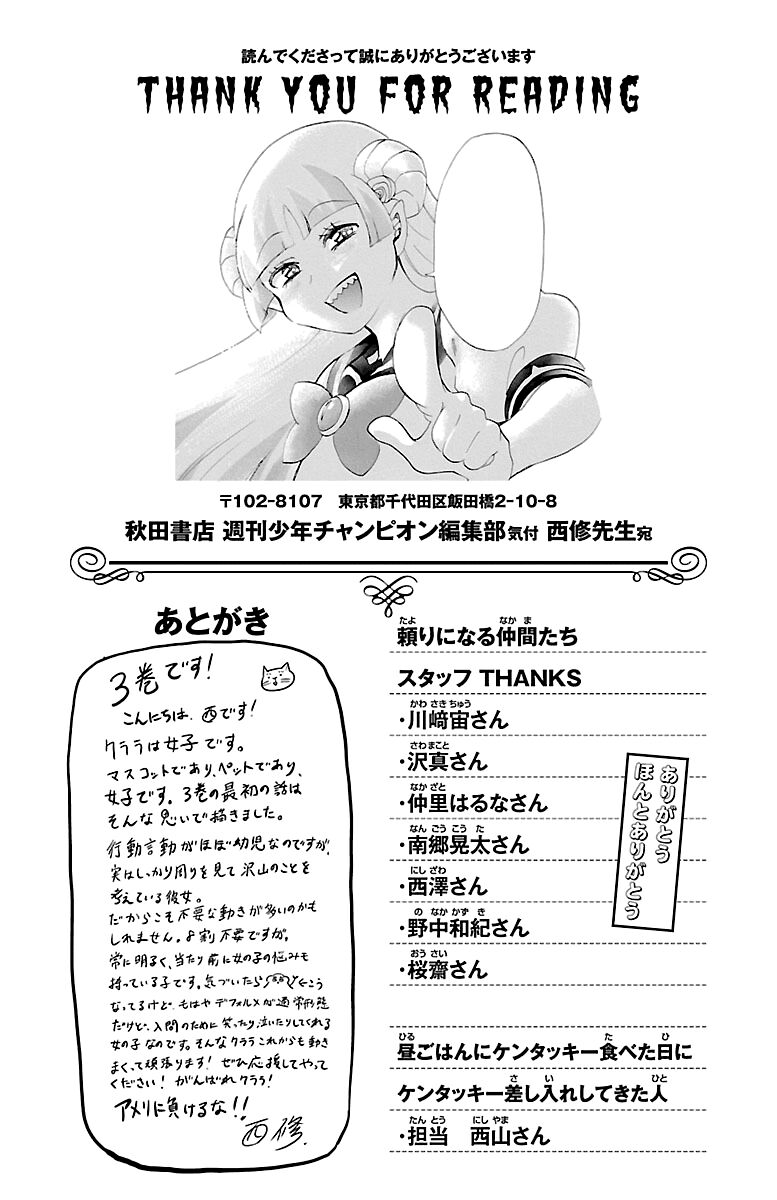 読んでくださって誠にありがとうございます
THANK YOU FOR READING
〒102-8107 東京都千代田区飯田橋2-10-8
秋田書店 週刊少年チャンピオン編集部気付 西修先生宛
あとがき
3巻です!
こんにちは、西です!
クララは女子です。
マスコットであり、ペットであり、
女子です。3巻の最初の話は
そんな思いで描きました。
行動言動がほぼ幼児なのですが、
実はしっかり周りを見て沢山のことを
考えている彼女。
だからこそ不要な動きが多いのかも
しれません。8割不要ですが。
常に明るく、当たり前に女の子の悩みも
持っている子です。気づいたら←こう
なってるけど、もはやデフォルメが通常形態
だけど、入間のために笑ったり泣いたりしてくれる
女の子なのです。そんなクララこれからも動き
まくって頑張ります!ぜひ応援してやって
ください!がんばれクララ!
アメリに負けるな!!
西修.
頼りになる仲間たち
スタッフ THANKS
・川﨑宙さん
・沢真さん
・仲里はるなさん
・南郷晃太さん
・西澤さん
・野中和紀さん
・桜齋さん
ありがとう
ほんとありがとう
昼ごはんにケンタッキー食べた日に
ケンタッキー差し入れしてきた人
・担当 西山さん